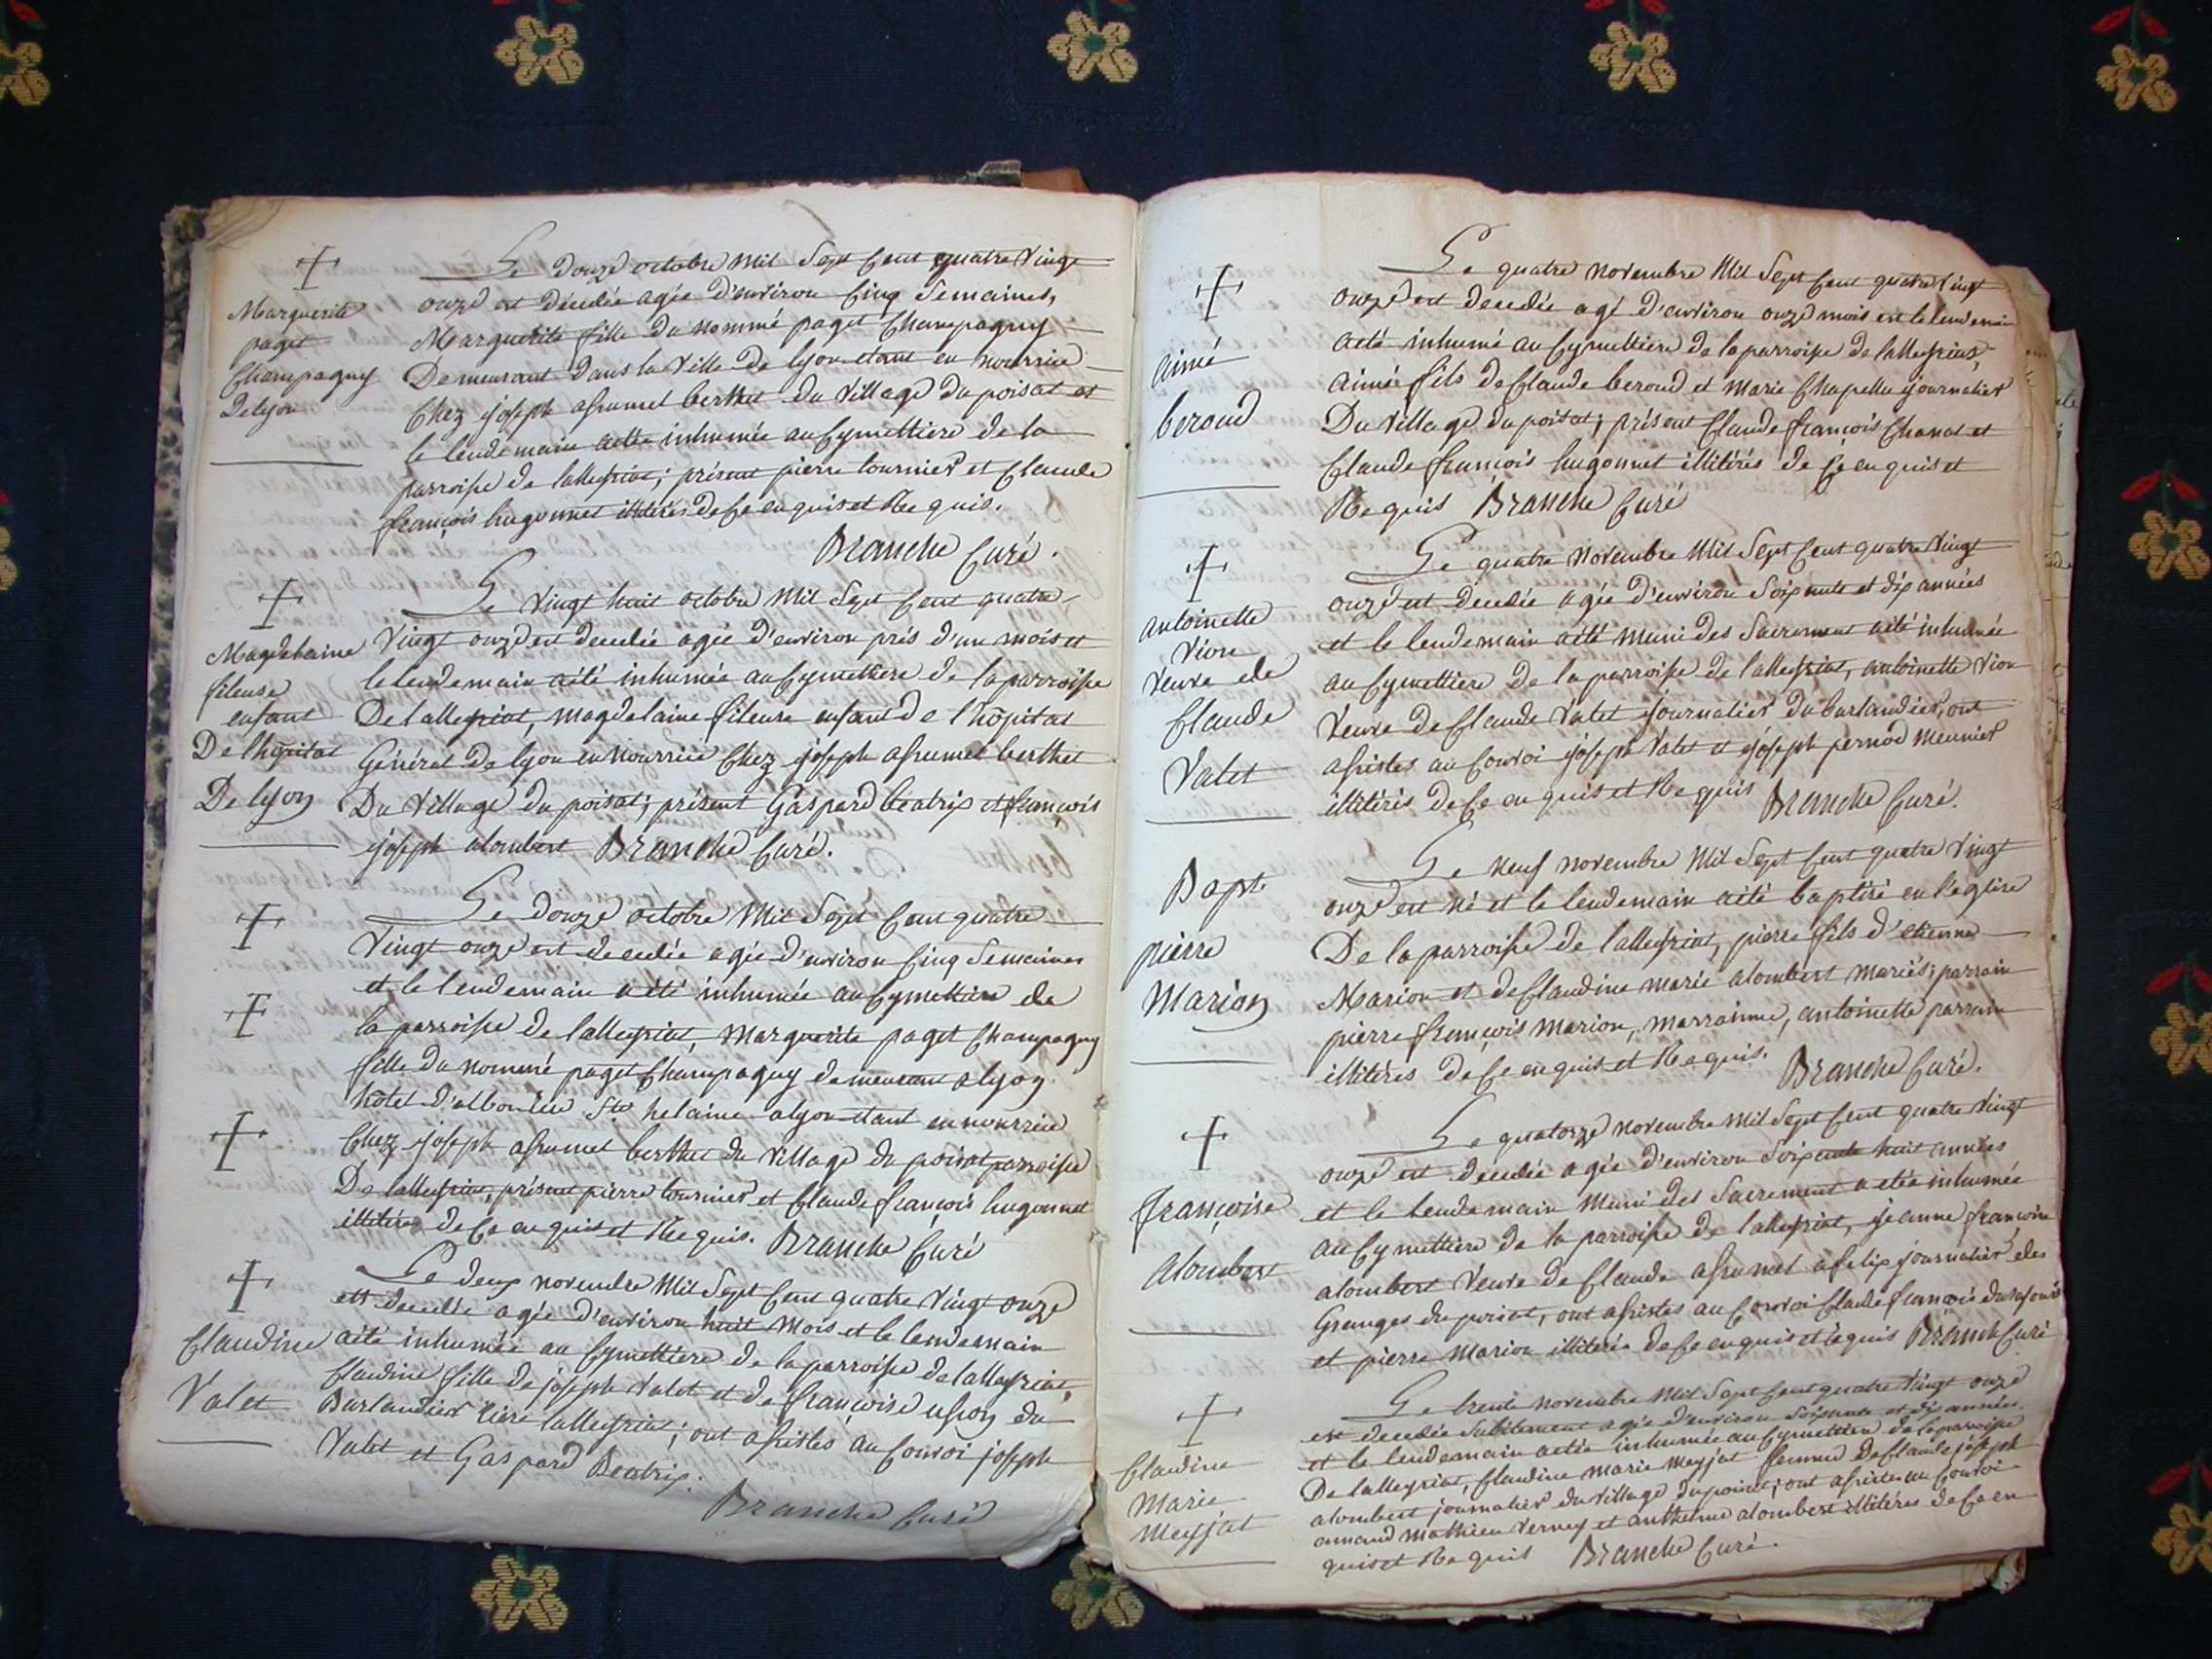 Marguerite
paget
Champagny
De lyon
Le douze octobre mil Sept Cent quatre Vingt
onze est décédée agée d'environ Cinq Semaines,
Marguerite fille du nommé paget Champagny
Demeurant dans la Ville de lyon etant en nourrice
Chez joseph assumel berthet du Village du poisat et
le lendemain a été inhumée au Cymettiere de la
parroisse de lalleyriat; présent pierre tournier et Claude
françois hugonnet illitérés de Ce enquis et Requis.
Branche Curé.
Magdelaine
fileuse
enfant
De l'hopital
De lyon
Le Vingt huit octobre mil Sept Cent quatre
Vingt onze est décédée agée d'environ prés d'un mois et
le lendemain a été inhumée au Cymettiere de la parroisse
De lalleyriat, magdelaine fileuse enfant de l'hôpital
Général de lyon en nourrice Chez joseph assumel berthet
Du Village du poisat; présent Gaspard béatrix et françois
joseph alombert Branche Curé.
Le douze octobre mil Sept Cent quatre
Vingt onze est décédée agée d'environ Cinq Semaines
et le lendemain a été inhumée au Cymettiere de
la parroisse de lalleyriat, Marguerite paget Champagny
fille du nommé paget Champagny demeurant a lyon
hôtel Ste helaine a lyon etant en nourrice
Chez joseph assumel berthet du Village du poisat parroisse
De lalleyriat, présent pierre tournier et Claude françois hugonnet
illitérés de Ce enquis et Requis. Branche Curé
Claudine
Valet
Le deux novembre Mil Sept Cent quatre Vingt onze
est décédée agée d'environ huit mois et le lendemain
a été inhumée au Cymettiere de la parroisse de lalleyriat,
Claudine fille de joseph Valet et de françoise du
Burlandier lalleyriat; ont assistés au Convoi joseph
Valet et Gaspard Beatrix.
Branche Curé
aimé
beroud
Le quatre novembre Mil Sept Cent quatre Vingt
onze est décédée agé d'environ onze mois et le lendemain
a été inhumé au Cymettiere de la parroisse de lalleyriat,
aimé fils de Claude beroud et Marie Chapellu journalier
Du Village du poisat; présent Claude françois Chanal et
Claude françois hugonnet illitérés de Ce enquis et
Requis Branche Curé
antoinette
Vion
Veuve de
Claude
Valet
Le quatre Novembre Mil Sept Cent quatre Vingt
onze est décédée agée d'environ Soixante et dix années
et le lendemain a été muni des Sacrement a été inhumée
au Cymettiere de la parroisse de lalleyriat, antoinette Vion
Veuve de Claude Valet journalier du burlandier, ont
assistés au Convoi joseph Valet et joseph pernod meunier
illitérés de Ce enquis et Requis Branche Curé.
Bapt.
pierre
Marion
Le neuf novembre Mil Sept Cent quatre Vingt
onze est né et le lendemain a été baptisé en l'eglise
De la parroisse de lalleyriat, pierre fils d'etienne
Marion et de Claudine marie alombert mariés; parrain
pierre françois Marion, marrainne, antoinette
illitérés de Ce enquis et Requis. Branche Curé.
françoise
alombert
Le quatorze novembre mil Sept Cent quatre Vingt
onze est décédée agée d'environ Soixante huit années
et le lendemain Muni des Sacrement a été inhumée
au Cymettiere de la parroisse de lalleyriat, jeanne françoise
alombert Veuve de Claude assumel journalier des
Granges du poisat, ont assistés au Convoi Claude françois
et pierre Marion illitérés de Ce enquis et requis Branche Curé
Claudine
Marie
Meyjat
Le trente novembre Mil Sept Cent quatre Vingt onze
est décédée Subitement agée d'environ Soixante et dix années
et le lendemain a été inhumée au Cymettiere de la parroisse
De lalleyriat, Claudine marie Meyjat femme de Claude joseph
alombert journalier du Village du poisat; ont assistés au Convoi
armand mathieu Verney et anthelme alombert illitérés de Ce en
quis et Requis Branche Curé.